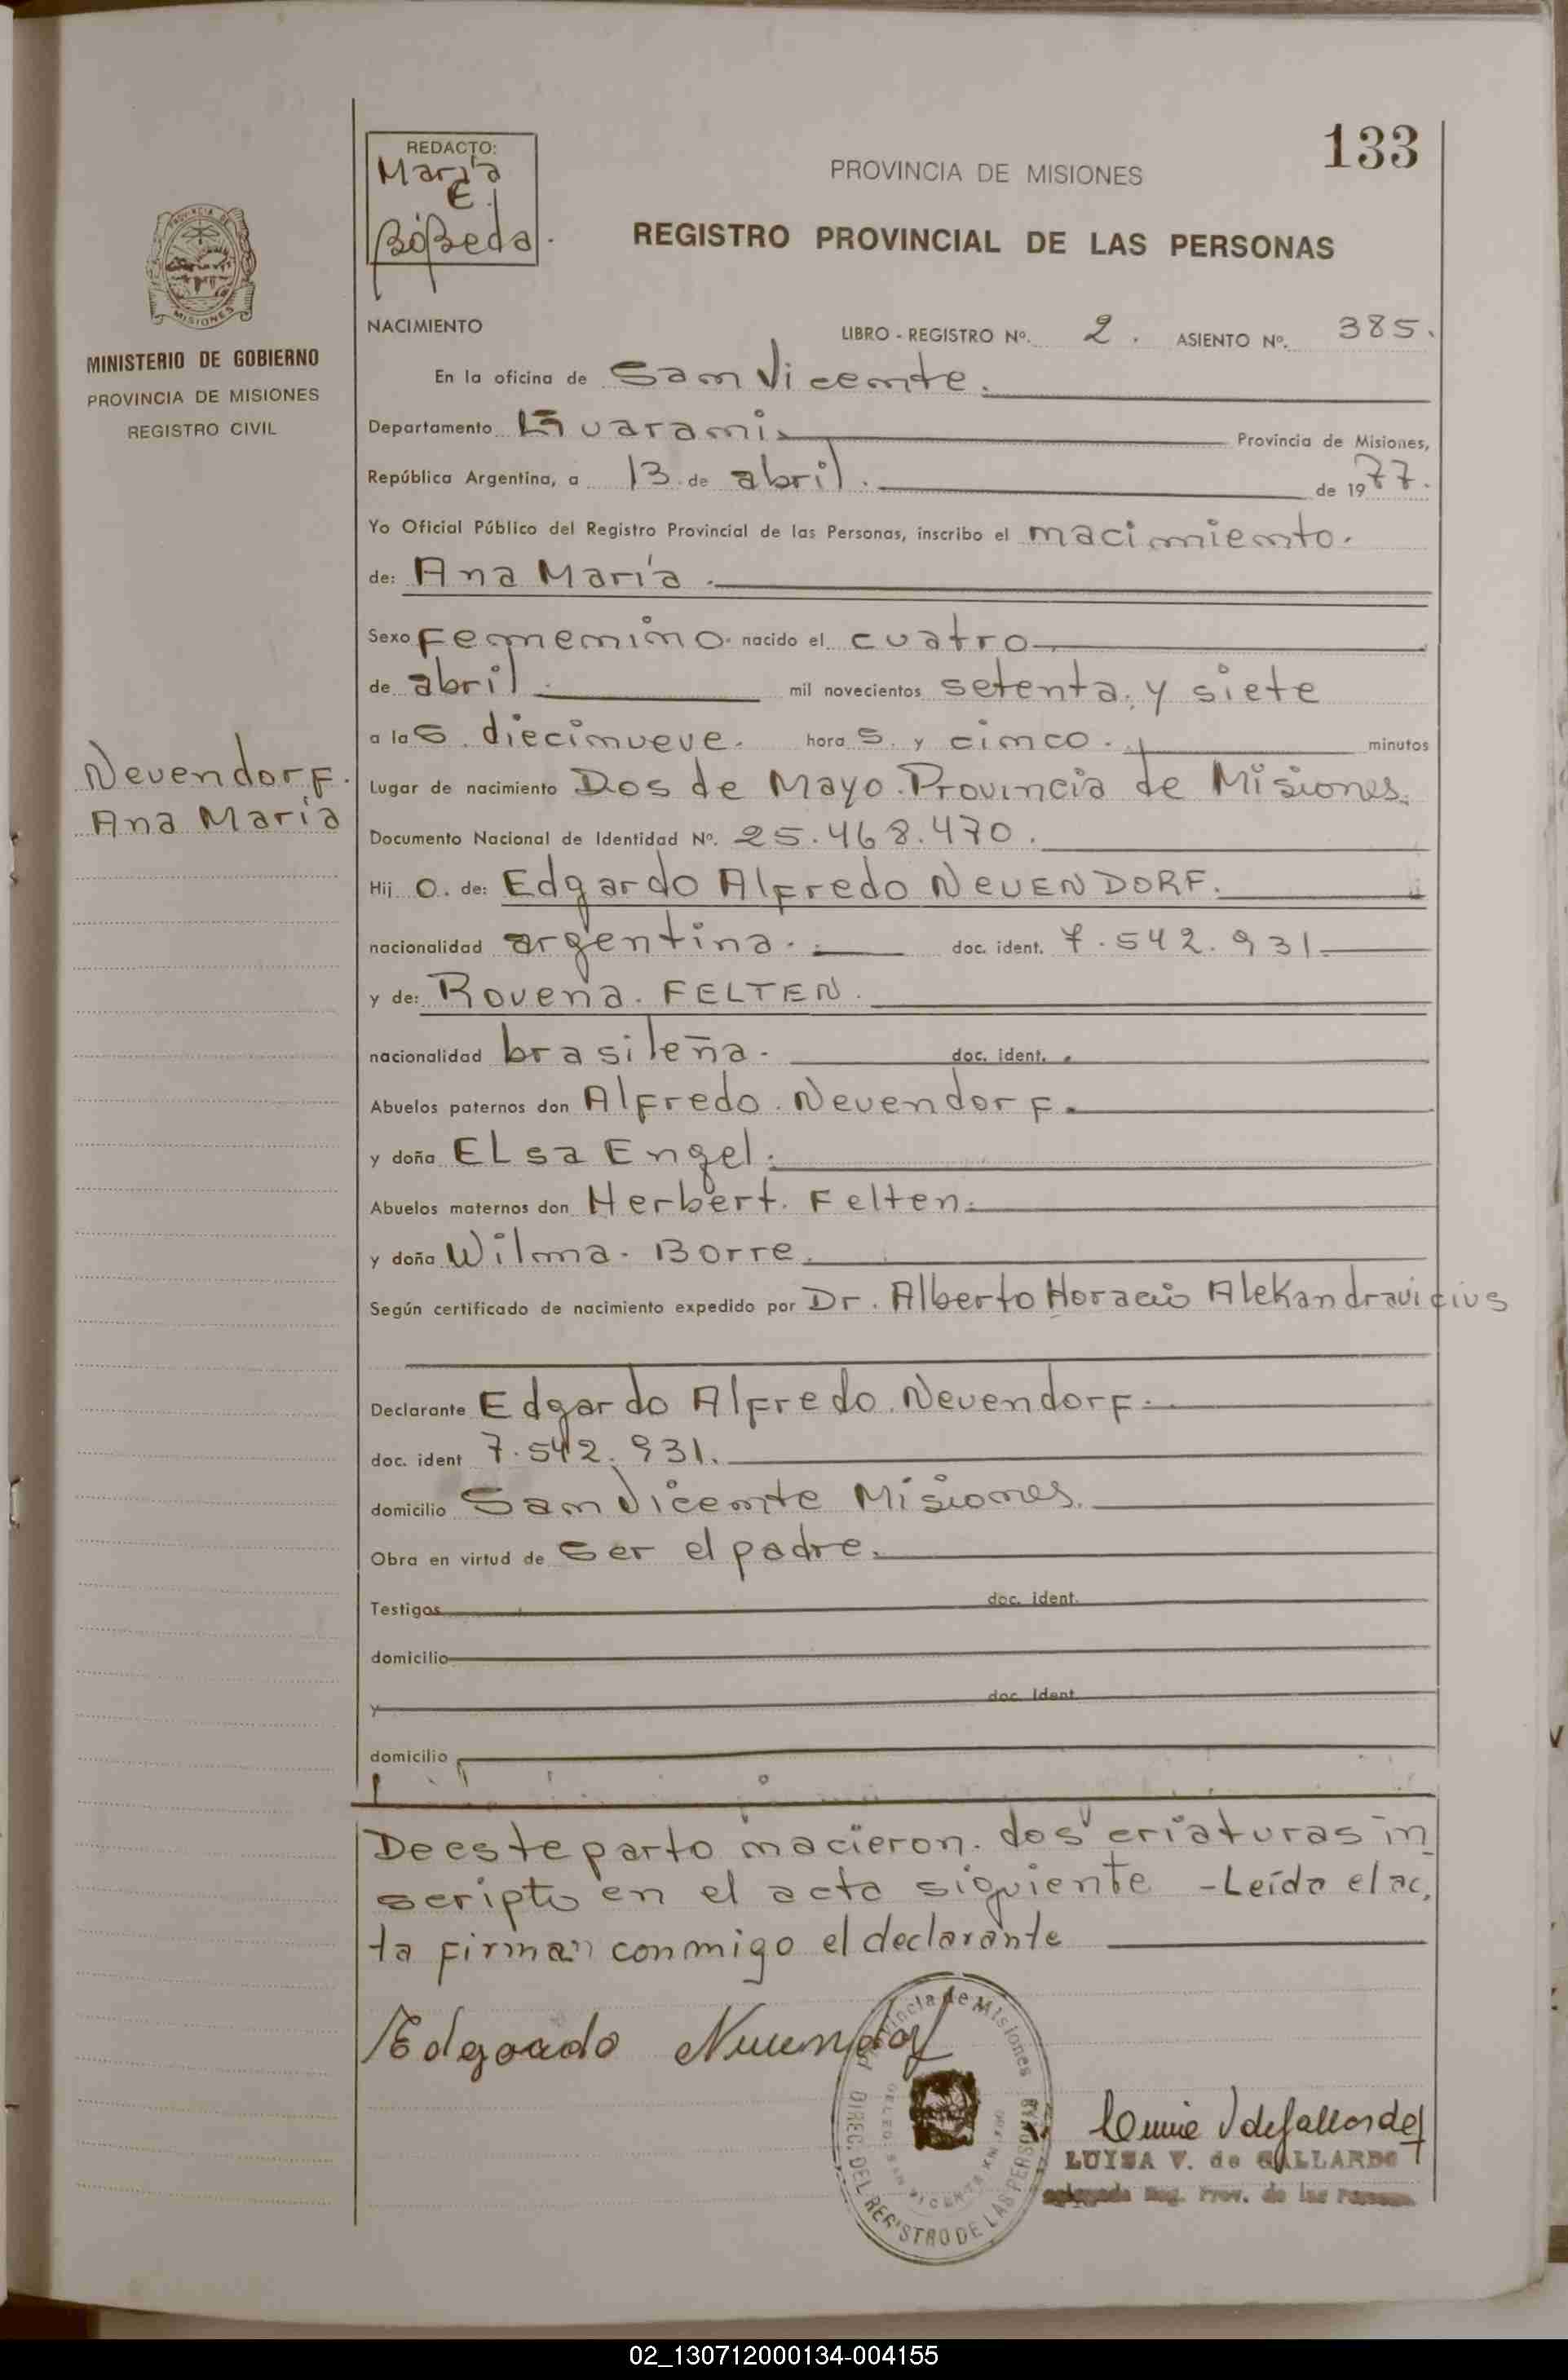 133
REDACTO:
María
E.
Bóbeda.
PROVINCIA DE MISIONES
REGISTRO PROVINCIAL DE LAS PERSONAS
PROVINCIA DE
MISIONES
MINISTERIO DE GOBIERNO
PROVINCIA DE MISIONES
REGISTRO CIVIL
NACIMIENTO LIBRO - REGISTRO Nº. 2. ASIENTO Nº. 385.
En la oficina de San Vicente.
Departamento Guarani Provincia de Misiones,
República Argentina, a 13 de abril. de 1977.
Yo Oficial Público del Registro Provincial de las Personas, inscribo el nacimiento.
de: Ana María.
Sexo Femenino. nacido el cuatro
de abril mil novecientos setenta y siete
a las diecinueve. horas. y cinco. minutos
Nevendorf.
Ana María
Lugar de nacimiento Dos de Mayo. Provincia de Misiones.
Documento Nacional de Identidad Nº. 25.468.470.
Hijo. de: Edgardo Alfredo NEVENDORF.
nacionalidad argentina. doc. ident. 7.542.931
y de: Rovena. FELTEN.
nacionalidad brasileña. doc. ident.
Abuelos paternos don Alfredo. Nevendorf.
y doña Elsa Engel.
Abuelos maternos don Herbert. Felten.
y doña Wilma. Borre.
Según certificado de nacimiento expedido por Dr. Alberto Horacio Alekandravicius
Declarante Edgardo Alfredo. Nevendorf.
doc. ident 7.542.931.
domicilio San Vicente Misiones.
Obra en virtud de ser el padre.
Testigos doc. ident.
domicilio
y doc. ident
domicilio
De este parto nacieron. dos criaturas in
scripto en el acta siguiente - Leída el ac,
ta firman conmigo el declarante
Edgardo
Provincia de Misiones
DIREC. DEL REGISTRO DE LAS PERSONAS
LUISA V. de GALLARDO
Reg. Prov. de las
02_130712000134-004155